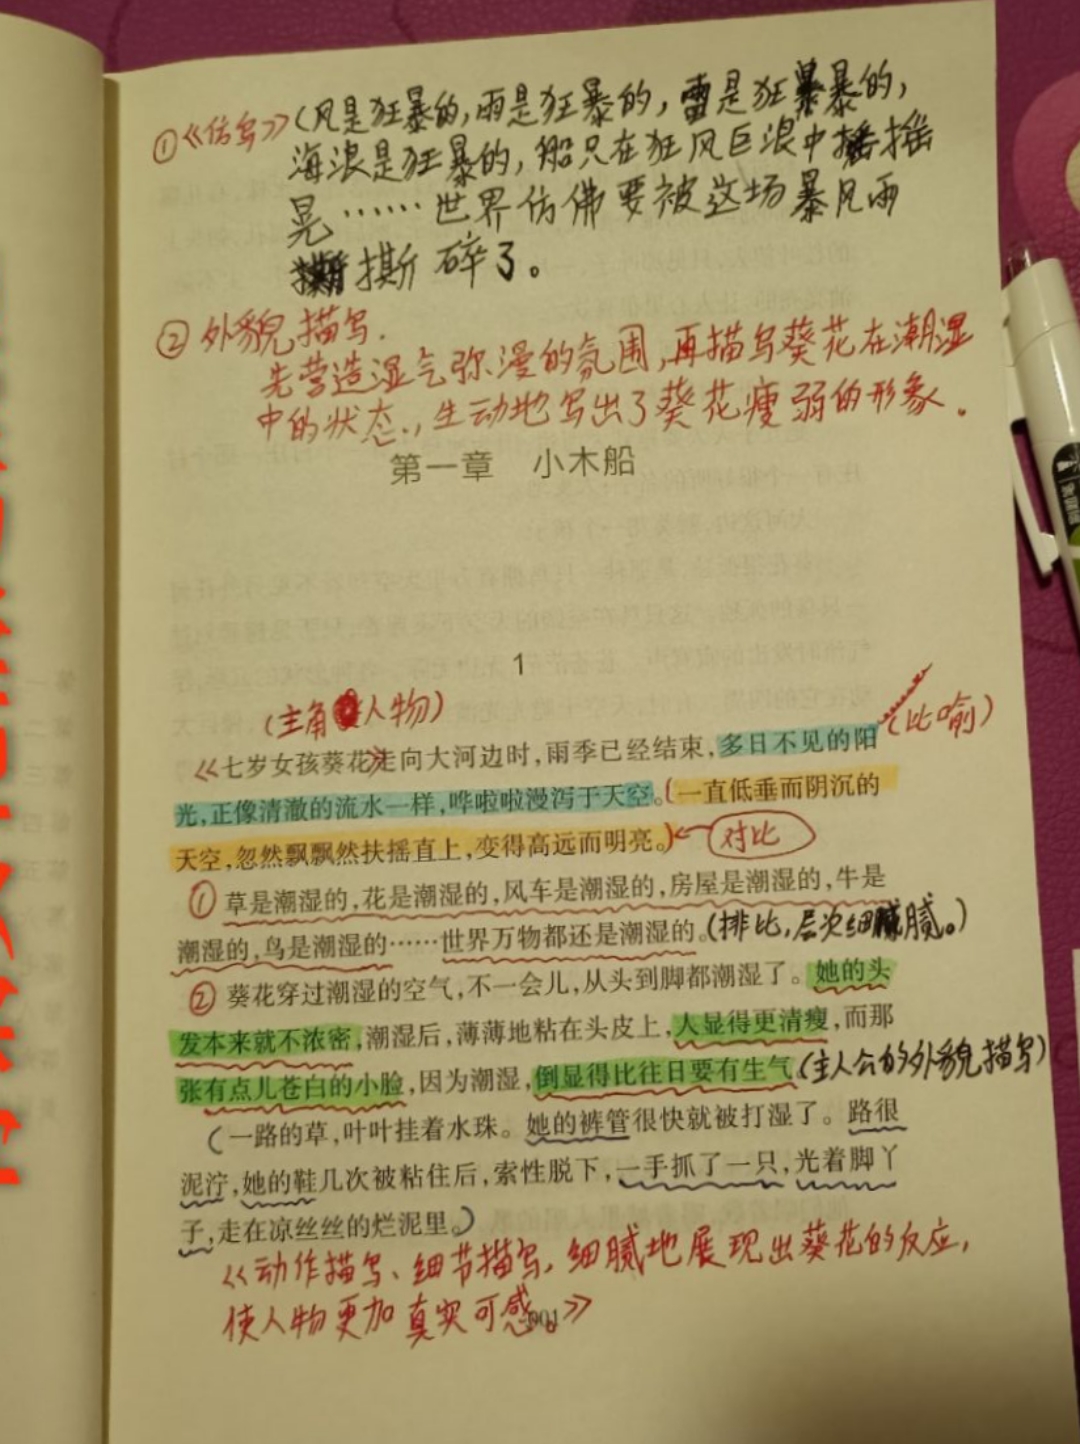 ①《仿写》(风是狂暴的,雨是狂暴的,雷是狂暴的,
海浪是狂暴的,船只在狂风巨浪中摇
晃……世界仿佛要被这场暴风雨
撕碎了。
②外貌描写.
先营造湿气弥漫的氛围,再描写葵花在潮湿
中的状态.,生动地写出了葵花瘦弱的形象.
第一章 小木船
1
(主角 人物)
《七岁女孩葵花》走向大河边时,雨季已经结束,多日不见的阳 (比喻)
光,正像清澈的流水一样,哗啦啦漫泻于天空。(一直低垂而阴沉的
天空,忽然飘飘然扶摇直上,变得高远而明亮。) 对比
①草是潮湿的,花是潮湿的,风车是潮湿的,房屋是潮湿的,牛是
潮湿的,鸟是潮湿的……世界万物都还是潮湿的。(排比,层次细腻。)
②葵花穿过潮湿的空气,不一会儿,从头到脚都潮湿了。她的头
发本来就不浓密,潮湿后,薄薄地粘在头皮上,人显得更清瘦,而那
张有点儿苍白的小脸,因为潮湿,倒显得比往日要有生气。(主人公的外貌描写)
(一路的草,叶叶挂着水珠。她的裤管很快就被打湿了。路很
泥泞,她的鞋几次被粘住后,索性脱下,一手抓了一只,光着脚丫
子,走在凉丝丝的烂泥里。)
《动作描写、细节描写,细腻地展现出葵花的反应,
使人物更加真实可感。》
001